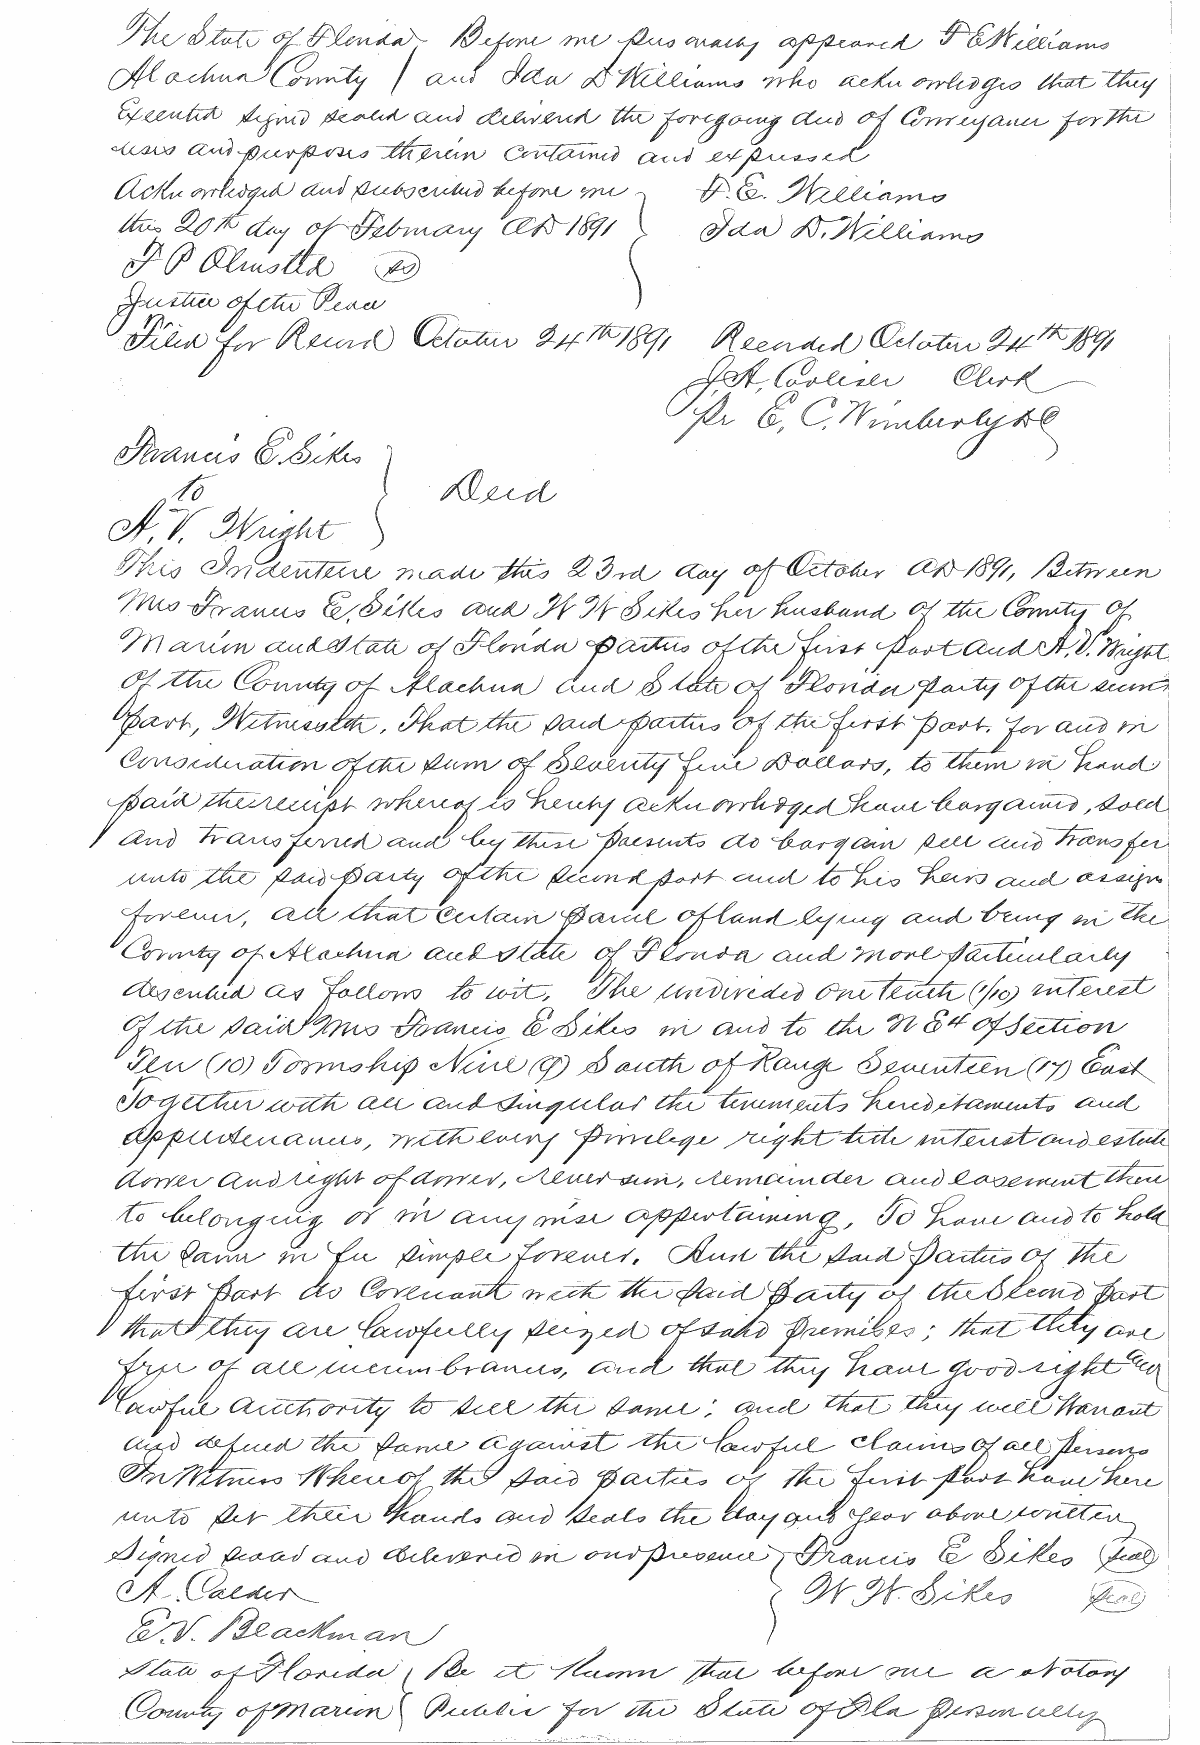 The State of Florida } Before me personally appeared F E Williams
Alachua County } and Ida D Williams who acknowledges that they
Executed signed sealed and delivered the foregoing deed of Conveyance for the
uses and purposes therein contained and expressed
Acknowledged and subscribed before me } F. E. Williams
this 20th day of February AD 1891 } Ida D. Williams
F P Olmsted
Justice of the Peace
Filed for Record October 24th 1891 Recorded October 24th 1891
J. A. Carlisle Clerk
Pr E. C. Wimberly DC
Francis E. Sikes
to } Deed
A. V. Wright
This Indenture made this 23rd day of October AD 1891, Between
Mrs Francis E. Sikes and W W Sikes her husband of the County of
Marion and State of Florida parties of the first part and A. V. Wright
of the County of Alachua and State of Florida party of the second
part, Witnesseth, That the said parties of the first part. for and in
Consideration of the sum of Seventy five Dollars, to them in hand
paid the receipt whereof is hereby acknowledged have bargained, sold
and transferred and by these presents do bargain sell and transfer
unto the said party of the second part and to his heirs and assigns
forever, all that certain parcel of land lying and being in the
County of Alachua and State of Florida and more particularly
described as follows to wit. The undivided one tenth (1/10) interest
of the said Mrs Francis E Sikes in and to the N E4 of Section
Ten (10) Township Nine (9) South of Range Seventeen (17) East
Together with all and singular the tenements hereditaments and
appurtenances, with every privilege right title interest and estate
dower and right of dower, reversion, remainder and easement there
to belonging or in anywise appertaining, To have and to hold
the same in fee simple forever. And the said Parties of the
first Part do Covenant with the said party of the Second part
that they are lawfully seized of said premises; that they are
free of all incumbrances, and that they have good right and
lawful authority to sell the same; and that they will Warrant
and defend the same against the lawful claims of all persons
In Witness Whereof the said parties of the first part have here
unto set their hands and seals the day and year above written
Signed sealed and delivered in our presence } Francis E Sikes (seal)
A. Calder } W. W. Sikes (seal)
E. V. Blackman
State of Florida } Be it Known that before me a Notary
County of Marion } Public for the State of Fla personally